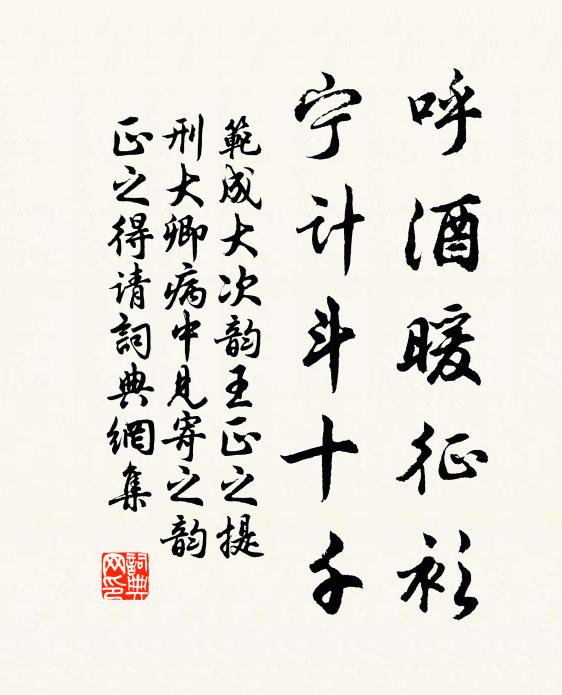 呼酒暖征衫
宁计斗十千
範成大次韵王正之提
刑大卿病中见寄之韵
正之得请詞典網集
詞典網印